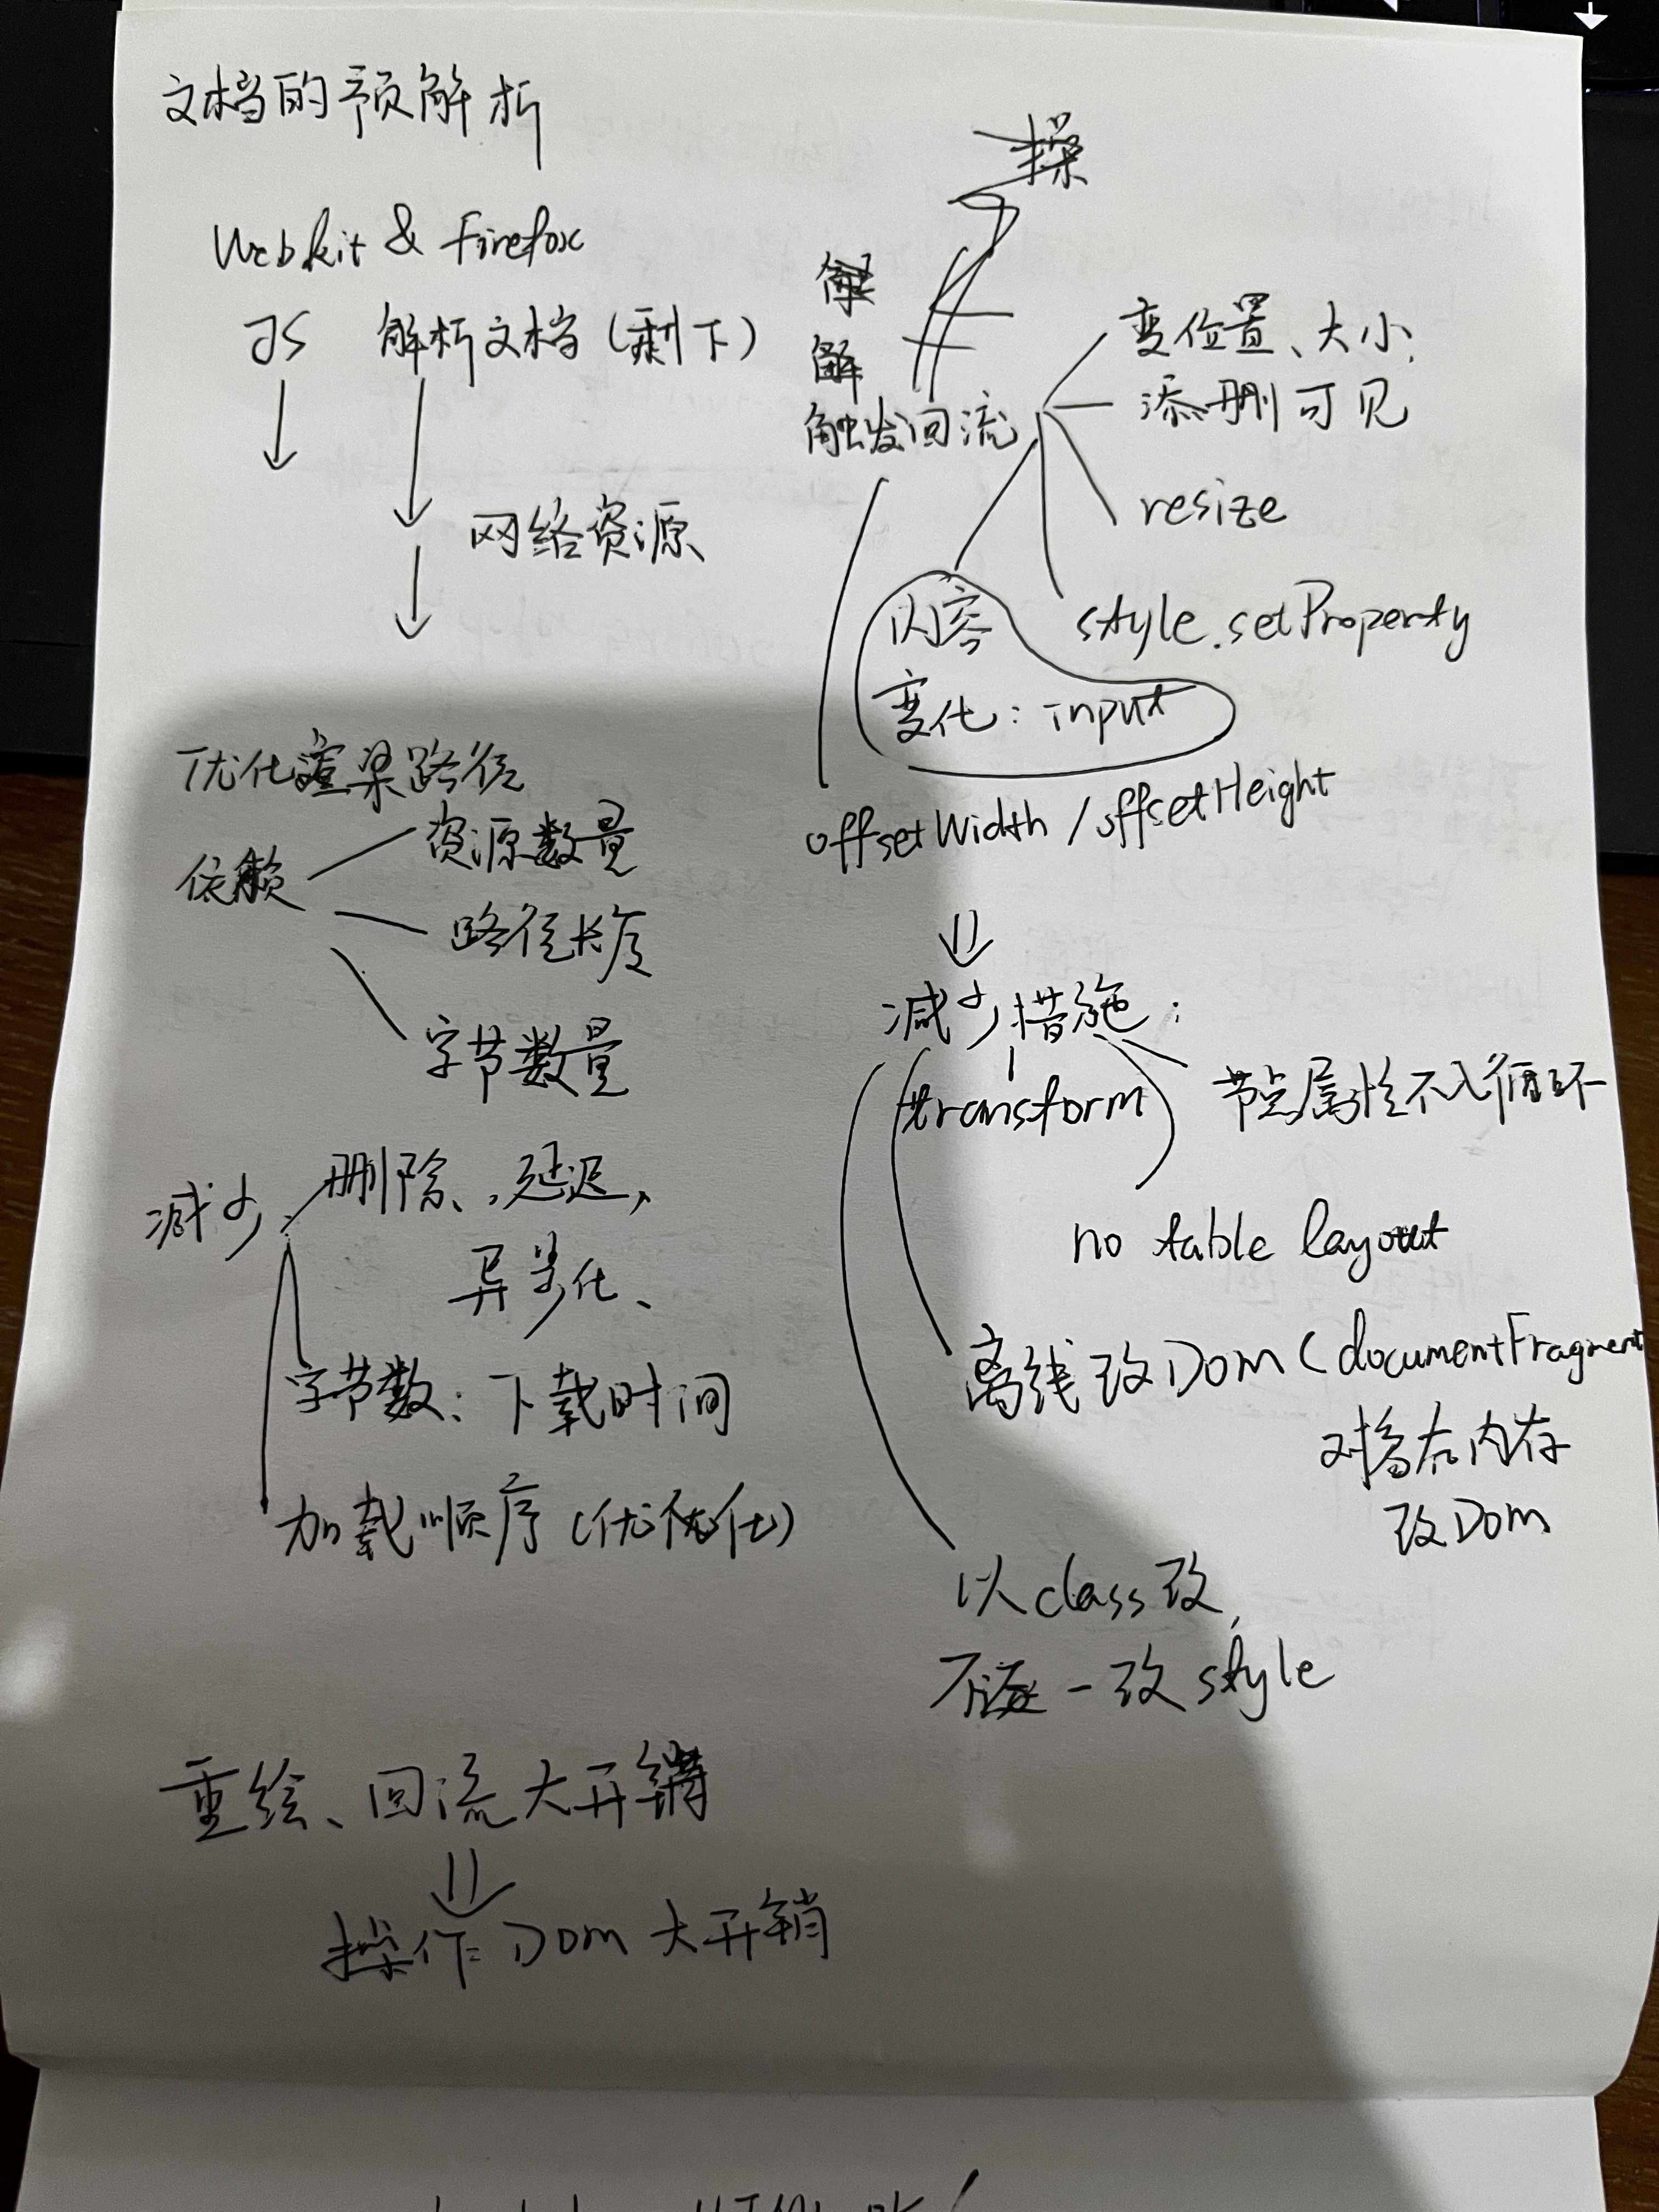 文档的预解析
Webkit & Firefox
JS 解析文档(剩下)
网络资源
优化渲染路径
依赖 资源数量
路径长度
字节数量
减少 删除、延迟、
异步化、
字节数:下载时间
加载顺序(优优化)
重绘、回流大开销
操作 Dom 大开销
操
解
触发回流
变位置、大小、
添删可见
resize
style.setProperty
内容
变化:input
offsetWidth / offsetHeight
减少措施:
transform 节点属性不入循环
no table layout
离线改Dom(documentFragment
对象在内存
改Dom
以class改,
不逐一改style